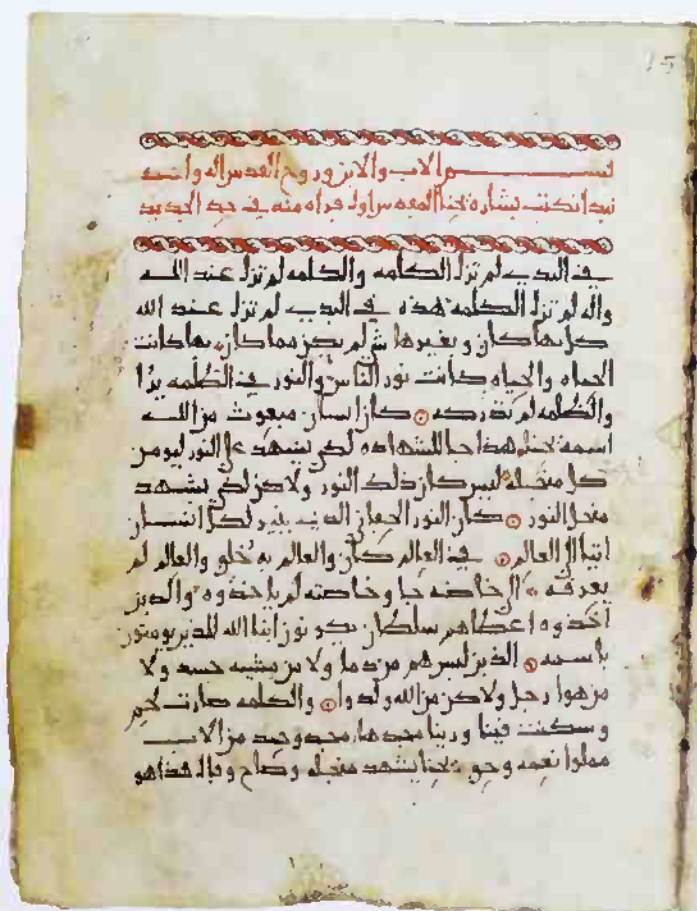 بسم الاب والابن وروح القدس اله واحد
نبدا نكتب بشاره يحنا اول قراه منه في حد الجديد
في البدي لم تزل الكلمه والكلمه لم تزل عند الله
واله لم تزل الكلمه هذه في البدي لم تزل عند الله
كل بها كان وبغيرها شي لم يكن مما كان بها كانت
الحياه والحياه كانت نور الناس والنور في الظلمه يرا
والظلمه لم تدركه كان انسان مبعوث من الله
اسمه يحنا هذا جا للشهاده لكي يشهد على النور ليومن
كل منجله ليس كان ذلك النور ولاكن لكي يشهد
منجل النور كان النور الحق الذي ينير لكل انسان
اتيا الى العالم في العالم كان والعالم به خلق والعالم لم
يعرفه الى خاصته جا وخاصته لم ياخذوه والذين
اخذوه اعطاهم سلطان يكونون ابنا الله للذين يومنون
باسمه الذين ليس هم من دما ولا من مشيه جسد ولا
من هوا رجل ولاكن من الله ولدوا والكلمه صارت لحم
وسكنت فينا وريا مجدها مجد وحيد من الاب
مملوا نعمه وحق يحنا يشهد منجله وصاح وقال هذا هو